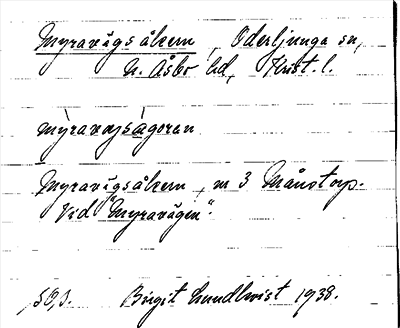 Myravägsåkern, Oderljunga sn,
N. Åsbo hd, Krist. l.
myravägsågoran
Myravägsåkern, m 3 Månstorp.
Vid "Myravägen".
Birgit Lundkvist 1938.